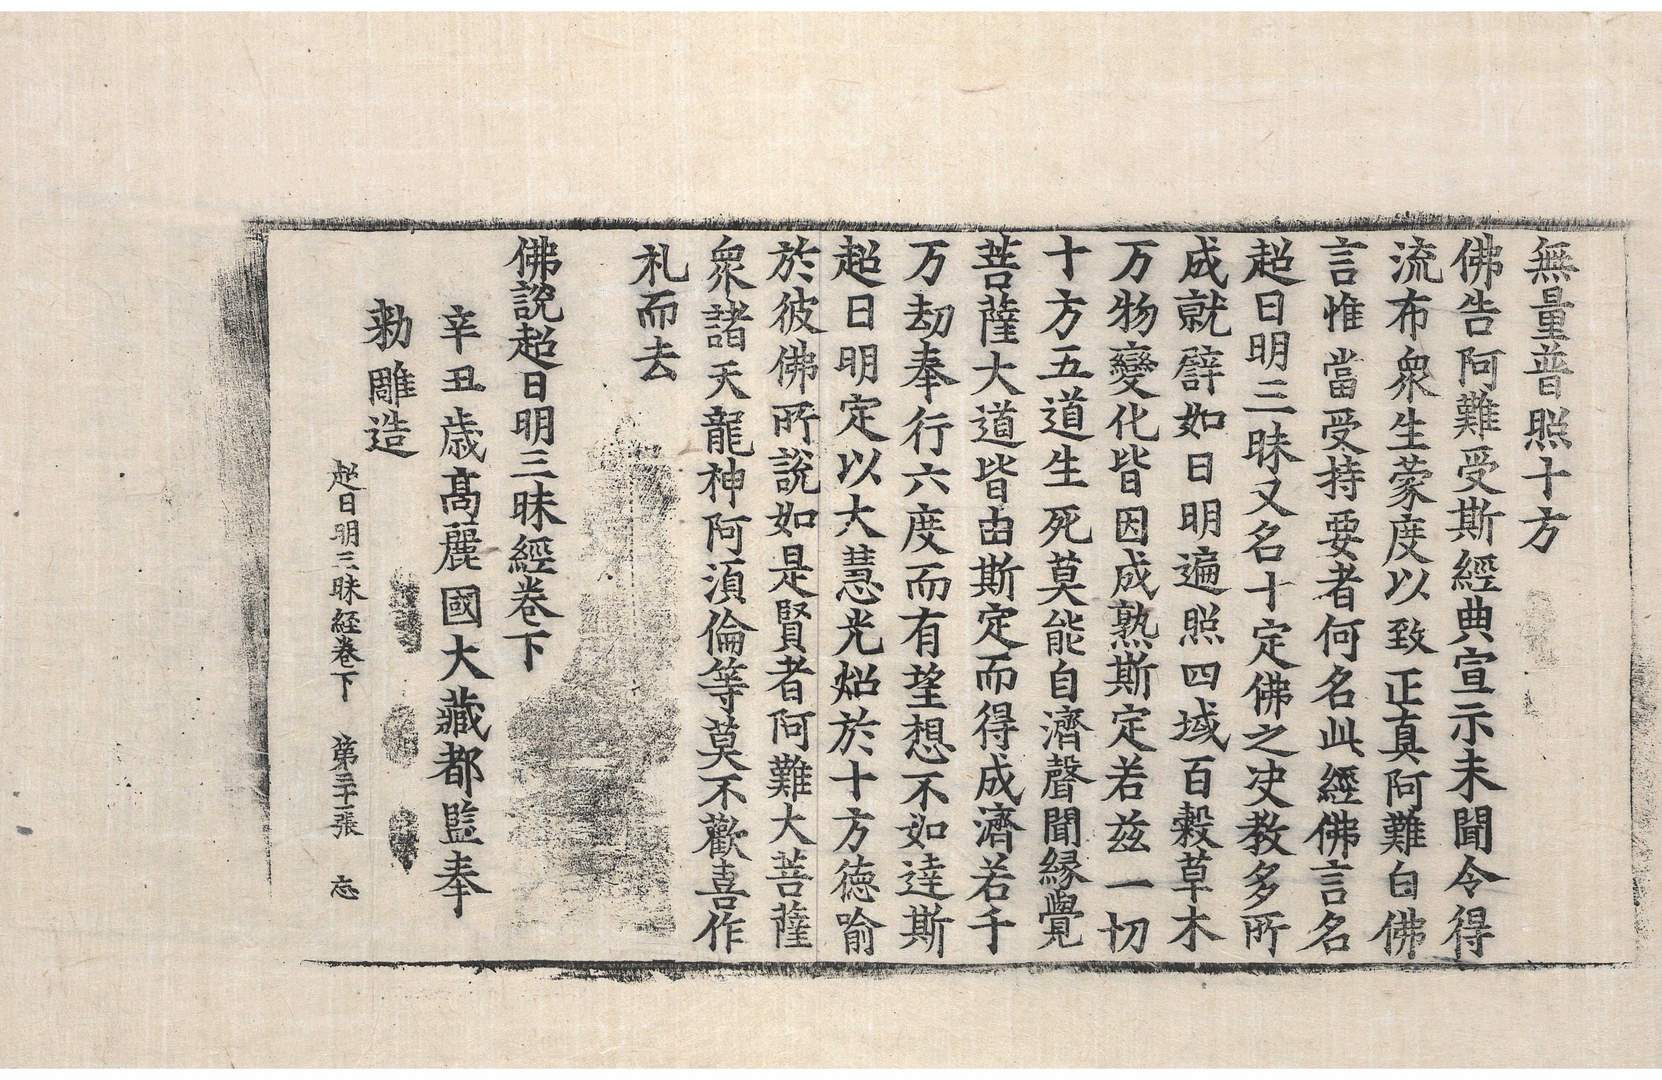 無量普照十方
佛告阿難受斯經典宣示未聞令得
流布衆生蒙度以致正真阿難白佛
言惟當受持要者何名此經佛言名
超日明三昧又名十定佛之决教多所
成就譬如日明遍照四域百穀草木
万物變化皆因成熟斯定若兹一切
十方五道生死莫能自濟聲聞縁覺
菩薩大道皆由斯定而得成濟若千
万劫奉行六度而有望想不如逹斯
超日明定以大慧光炤於十方德喻
於彼佛所說如是賢者阿難大菩薩
衆諸天龍神阿須倫等莫不歡喜作
礼而去
佛說超日明三昧經卷下
辛丑歳高麗國大藏都監奉
勅雕造
超日明三昧経卷下 第三十張 忘